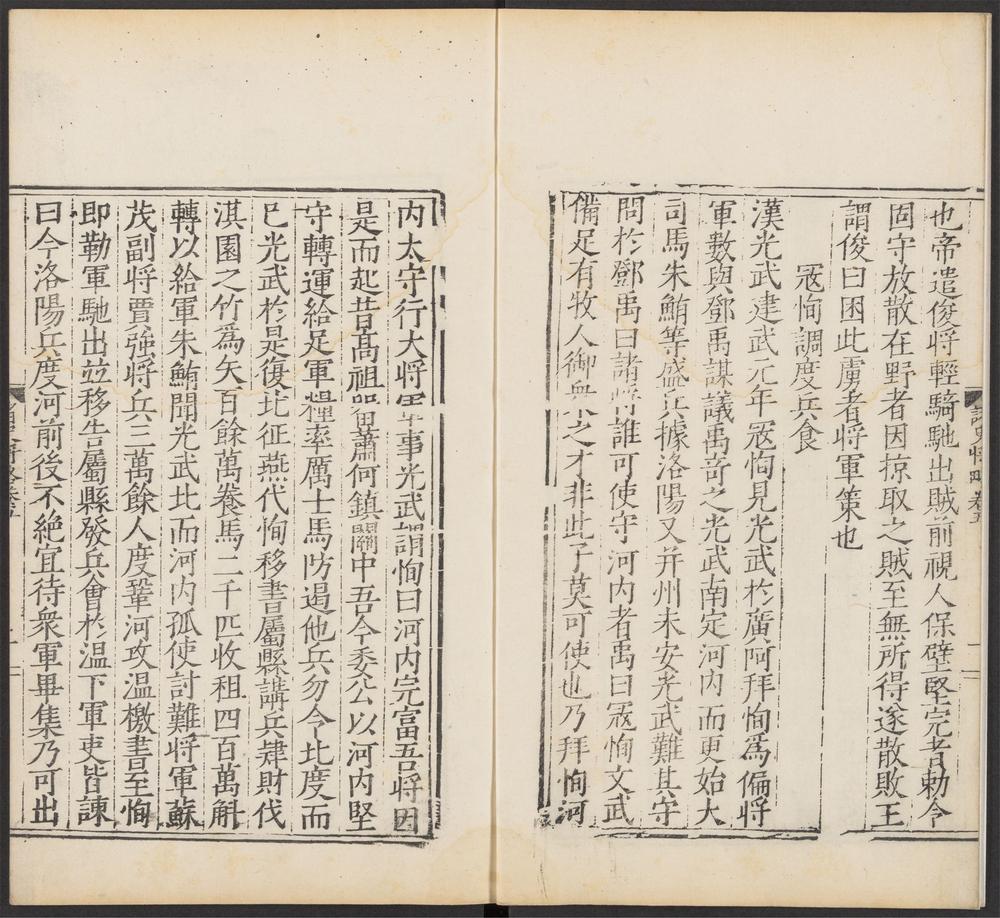 也帝遣俊將輕騎馳出賊前視人保壁堅完者勅令
固守放散在野者因掠取之賊至無所得遂散敗王
謂俊曰困此虜者將軍策也
冦恂調度兵食
漢光武建武元年冦恂見光武於廣阿拜恂爲偏將
軍數與鄧禹謀議禹竒之光武南定河内而更始大
司馬朱鮪等盛兵據洛陽又并州未安光武難其守
問於鄧禹曰諸將誰可使守河内者禹曰冦恂文武
備足有牧人御衆之才非此子莫可使也乃拜恂河
内太守行大将軍事光武謂恂曰河内完富吾将因
是而起昔高祖留蕭何鎮關中吾今委公以河内堅
守轉運給足軍糧率厲士馬防遏他兵勿令北度而
已光武於是復北征燕代恂移書屬縣講兵肄財伐
淇園之竹爲矢百餘萬養馬二千匹收租四百萬斛
轉以給軍朱鮪聞光武北而河内孤使討難將軍蘇
茂副將賈強將兵三萬餘人度鞏河攻溫檄書至恂
即勒軍馳出並移告屬縣發兵會於溫下軍吏皆諫
曰今洛陽兵度河前後不絶宜待衆軍畢集乃可出